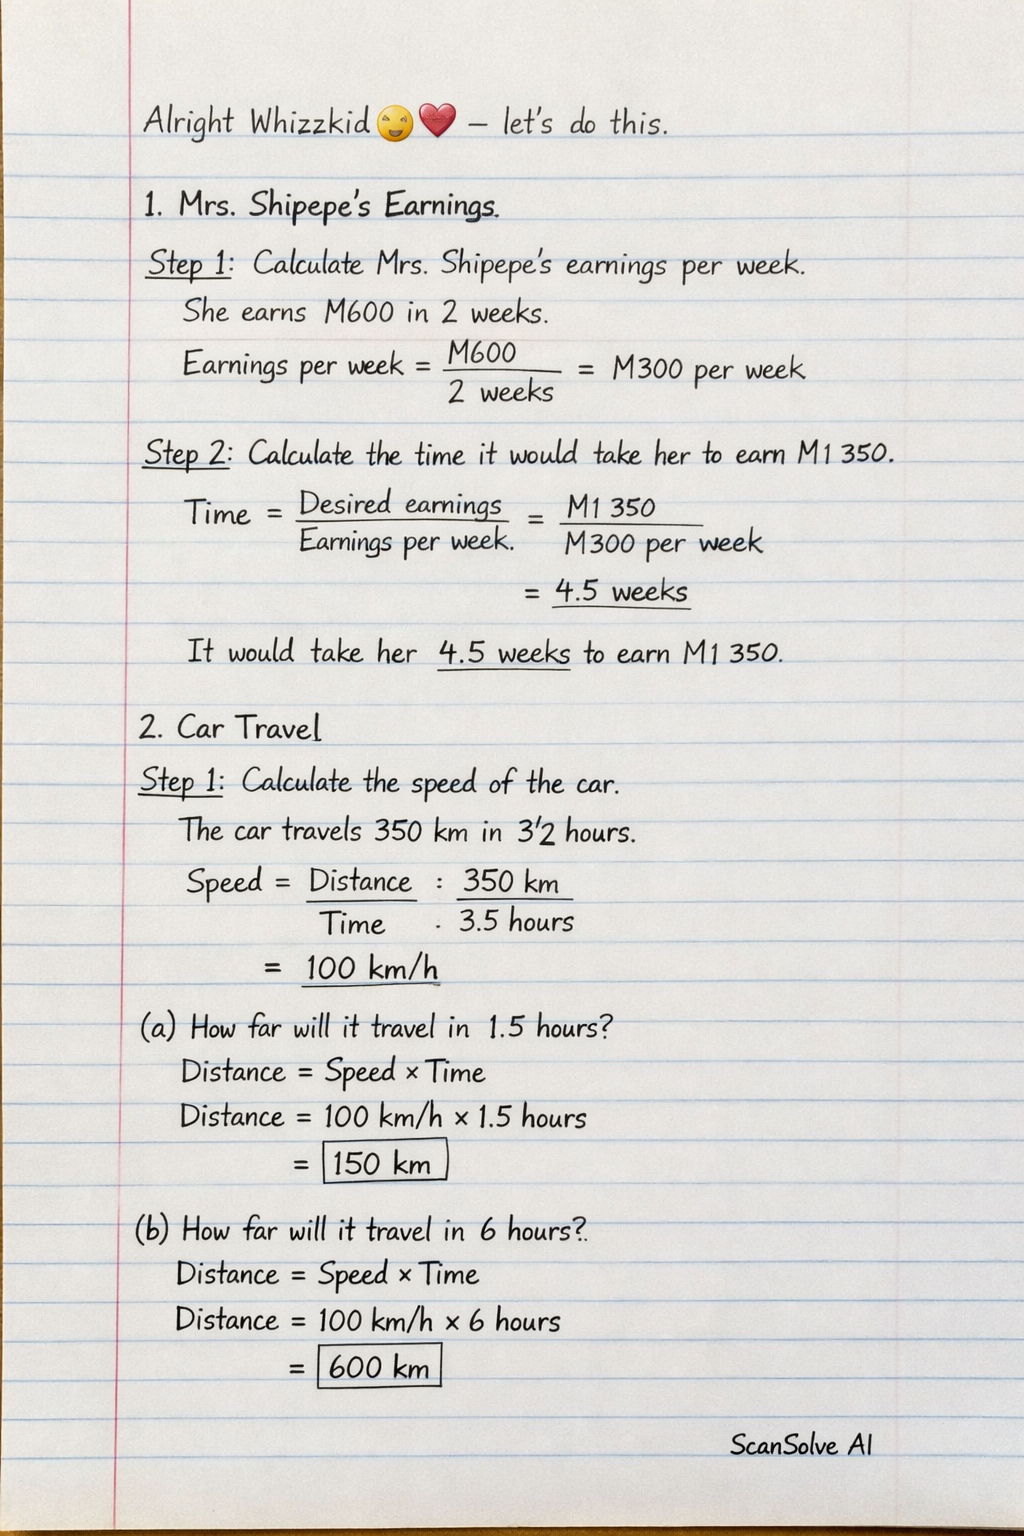 Alright Whizzkid😄❤️ – let's do this.
1. Mrs. Shipepe's Earnings.
Step 1: Calculate Mrs. Shipepe's earnings per week.
She earns M600 in 2 weeks.
Earnings per week = M600 / 2 weeks = M300 per week
Step 2: Calculate the time it would take her to earn M1 350.
Time = Desired earnings / Earnings per week. = M1 350 / M300 per week
= 4.5 weeks
It would take her 4.5 weeks to earn M1 350.
2. Car Travel
Step 1: Calculate the speed of the car.
The car travels 350 km in 3'2 hours.
Speed = Distance / Time : 350 km / 3.5 hours
= 100 km/h
(a) How far will it travel in 1.5 hours?
Distance = Speed × Time
Distance = 100 km/h × 1.5 hours
= 150 km
(b) How far will it travel in 6 hours?
Distance = Speed × Time
Distance = 100 km/h × 6 hours
= 600 km
ScanSolve AI